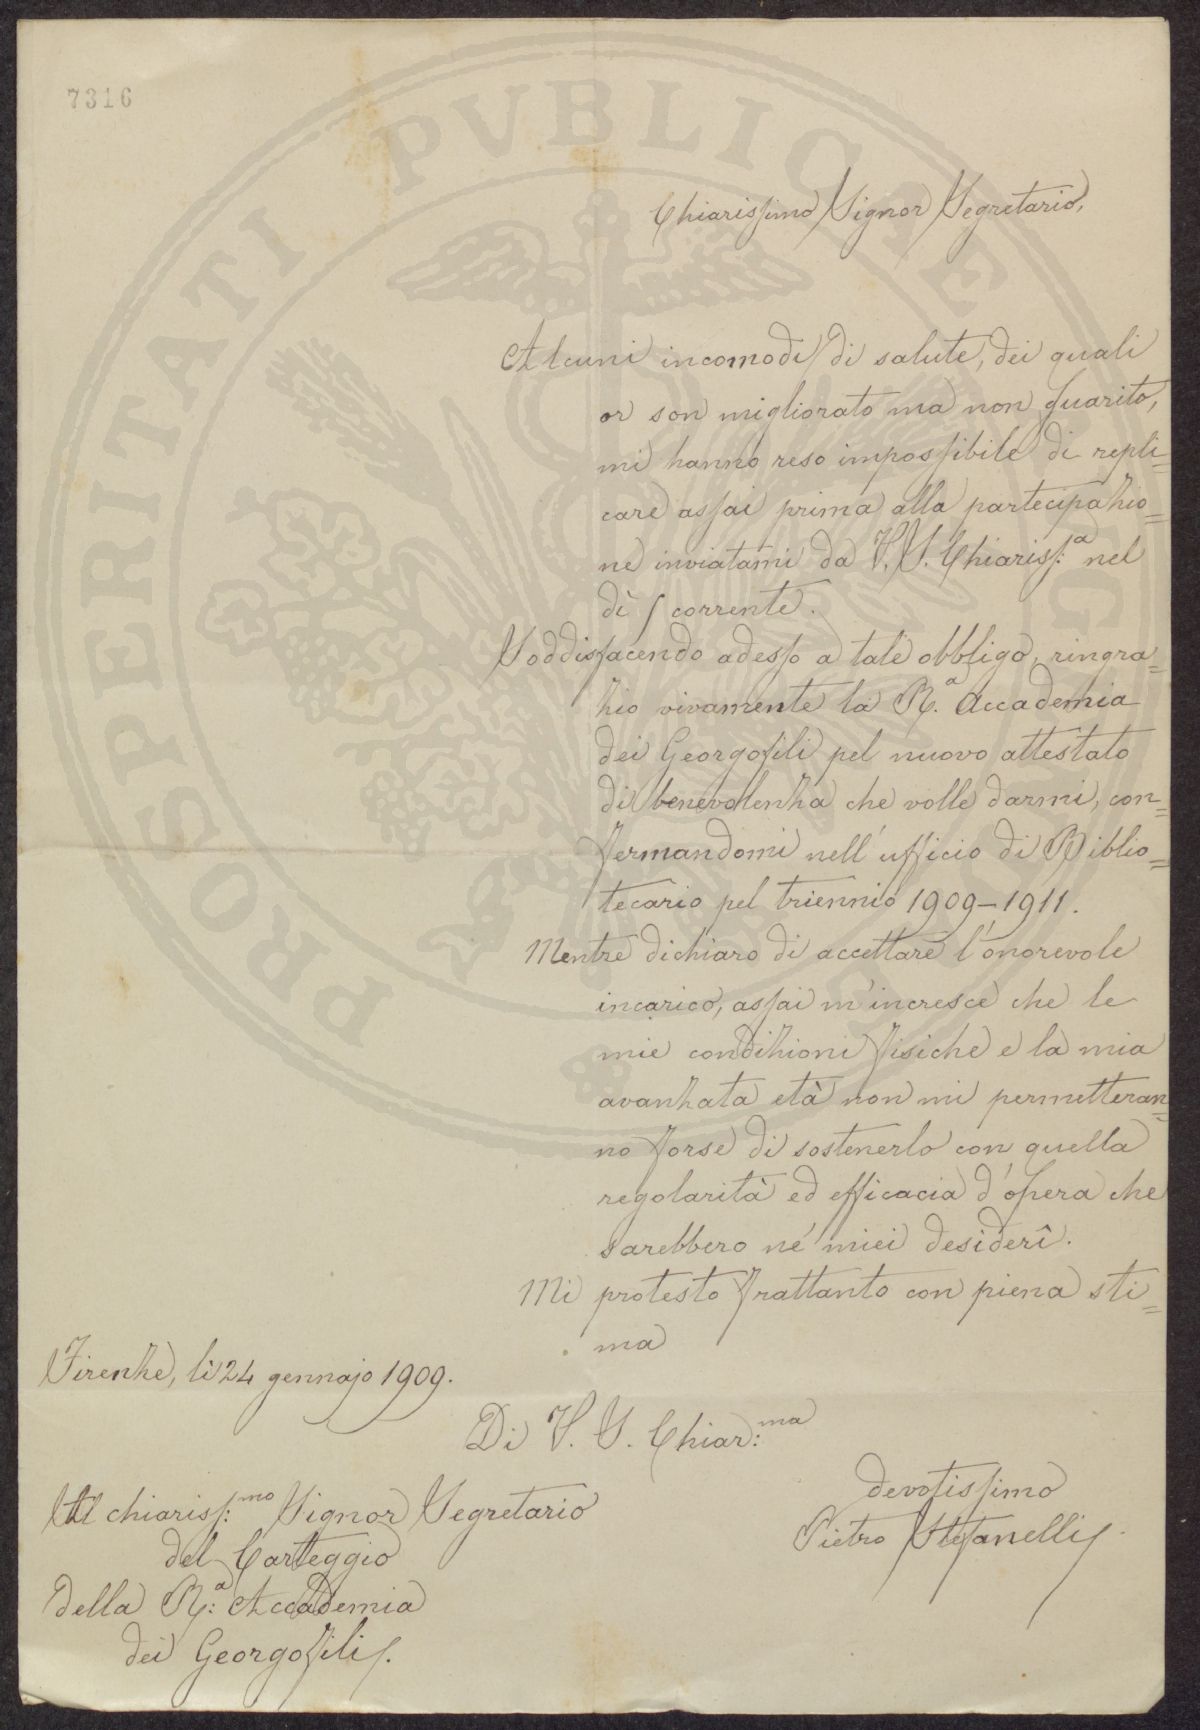 7316
PROSPERITATI PVBLICAE
Chiarissimo Signor Segretario,
Alcuni incomodi di salute, dei quali
or son migliorato ma non guarito,
mi hanno reso impossibile di repli=
care assai prima alla partecipazio=
ne inviatami da V. S. Chiariss:a nel
dì 5 corrente.
Soddisfacendo adesso a tale obbligo, ringra=
zio vivamente la R.a Accademia
dei Georgofili pel nuovo attestato
di benevolenza che volle darmi, con=
fermandomi nell'ufficio di Biblio=
tecario pel triennio 1909-1911.
Mentre dichiaro di accettare l'onorevole
incarico, assai m'incresce che le
mie condizioni fisiche e la mia
avanzata età non mi permetteran=
no forse di sostenerlo con quella
regolarità ed efficacia d'opera che
sarebbero ne' miei desiderî.
Mi protesto frattanto con piena sti=
ma
Firenze, lì 24 gennajo 1909.
Di V. S. Chiar:ma
devotissimo
Pietro Stefanelli
Al chiariss:mo Signor Segretario
del Carteggio
della R:a Accademia
dei Georgofili.